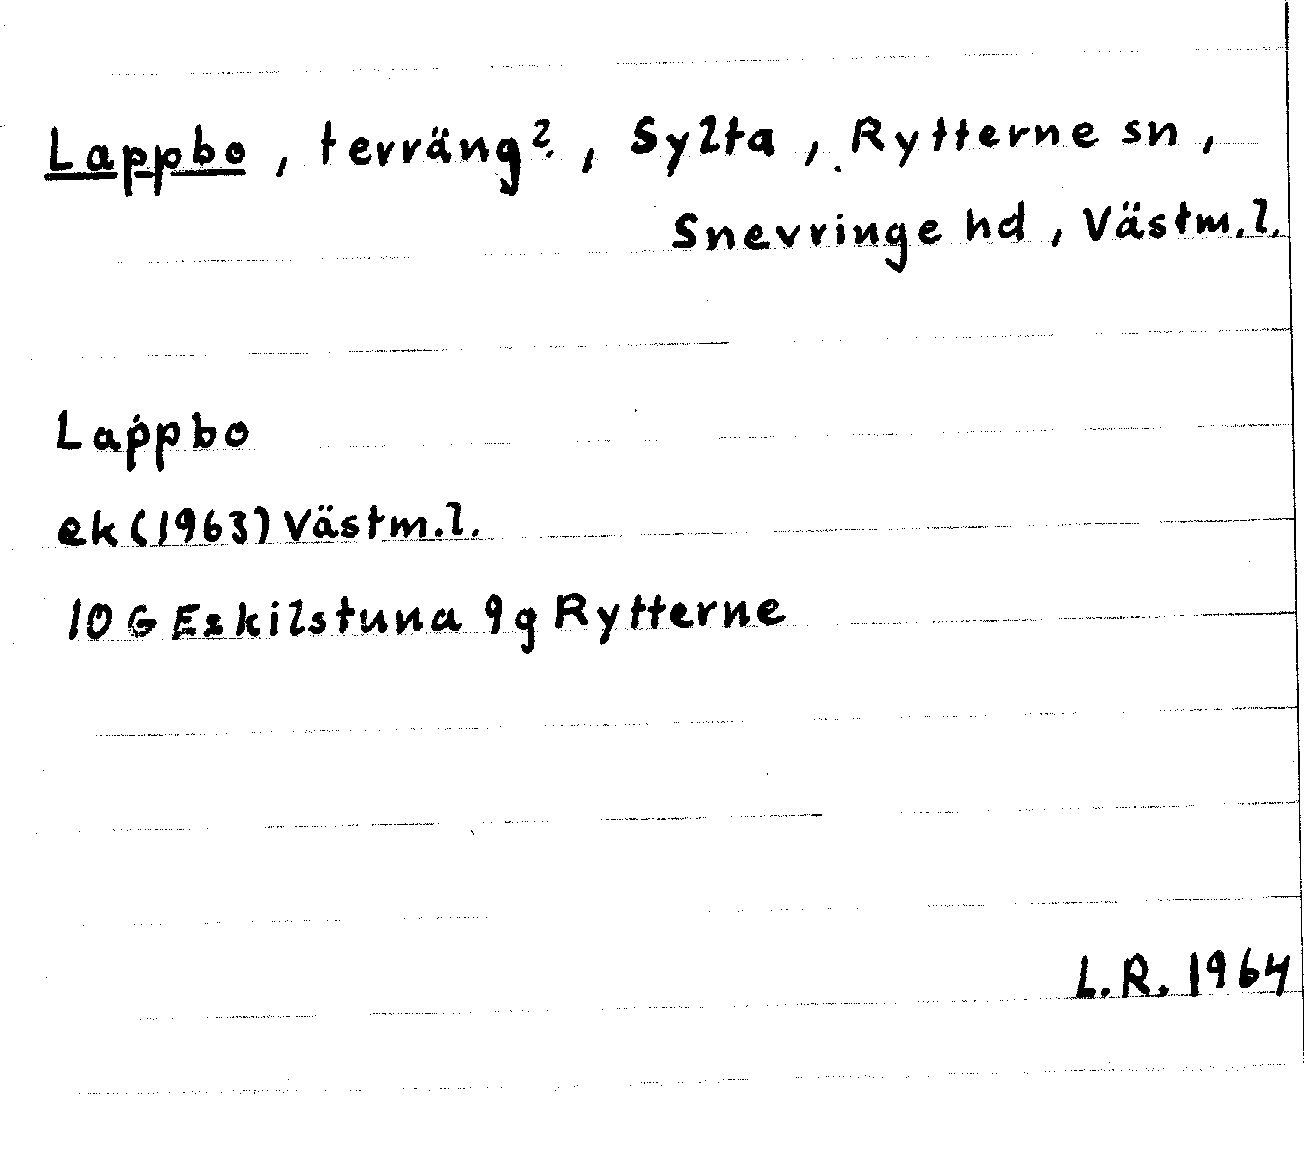 Lappbo, terräng?, Sylta, Rytterne sn,
Snevringe hd, Västm.l.
Lappbo
ek (1963) Västm.l.
10 G Eskilstuna 9g Rytterne
L.R. 1964